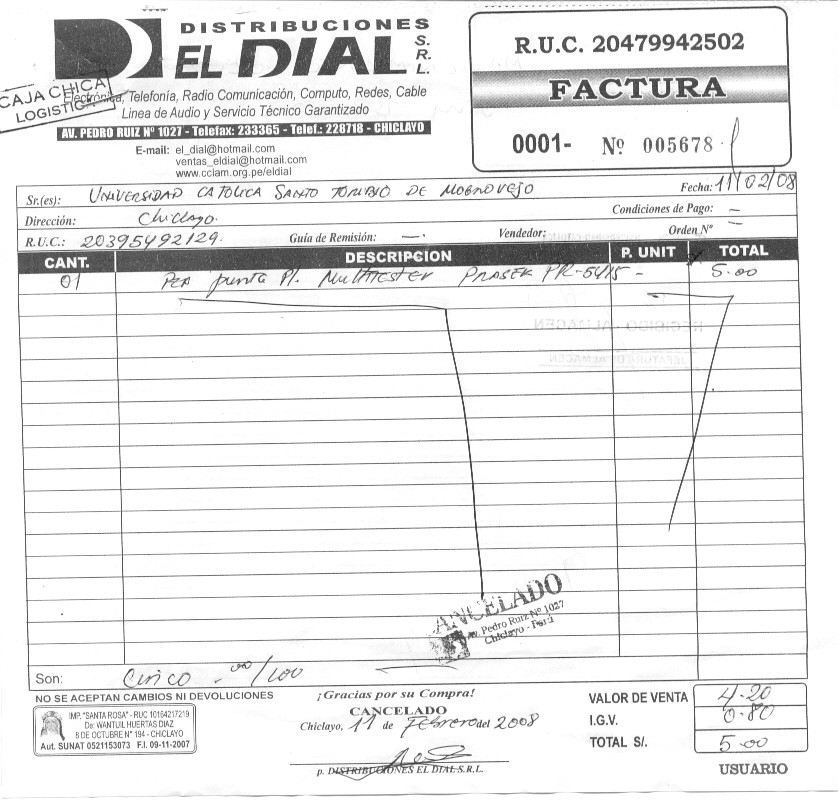 DISTRIBUCIONES
EL DIAL S.R.L.
CAJA CHICA
LOGISTICA
Electrónica, Telefonía, Radio Comunicación, Computo, Redes, Cable
Linea de Audio y Servicio Técnico Garantizado
AV. PEDRO RUIZ Nº 1027 - Telefax: 233365 - Telef.: 228718 - CHICLAYO
E-mail: el_dial@hotmail.com
ventas_eldial@hotmail.com
www.cclam.org.pe/eldial
R.U.C. 20479942502
FACTURA
0001- Nº 005678
Sr.(es): UNIVERSIDAD CATOLICA SANTO TORIBIO DE MOGROVEJO Fecha: 11/02/08
Dirección: Chiclayo. Condiciones de Pago: —
R.U.C.: 20395492129. Guía de Remisión: —. Vendedor: Orden Nº —
CANT. DESCRIPCION P. UNIT TOTAL
01 punta P/. Multitester PRASEK PR-54/15 - 5.00
RECIBIDO - ALMACEN
JEFATURA DE ALMACEN
CANCELADO
Av. Pedro Ruiz Nº 1027
Chiclayo - Perú
Son: Cinco . 00/100
NO SE ACEPTAN CAMBIOS NI DEVOLUCIONES
IMP. "SANTA ROSA" - RUC 10164217219
De: WANTUIL HUERTAS DIAZ
8 DE OCTUBRE N° 194 - CHICLAYO
Aut. SUNAT 0521153073 F.I. 09-11-2007
¡Gracias por su Compra!
CANCELADO
Chiclayo, 11 de Febrero del 2008
p. DISTRIBUCIONES EL DIAL S.R.L.
VALOR DE VENTA 4.20
I.G.V. 0.80
TOTAL S/. 5.00
USUARIO